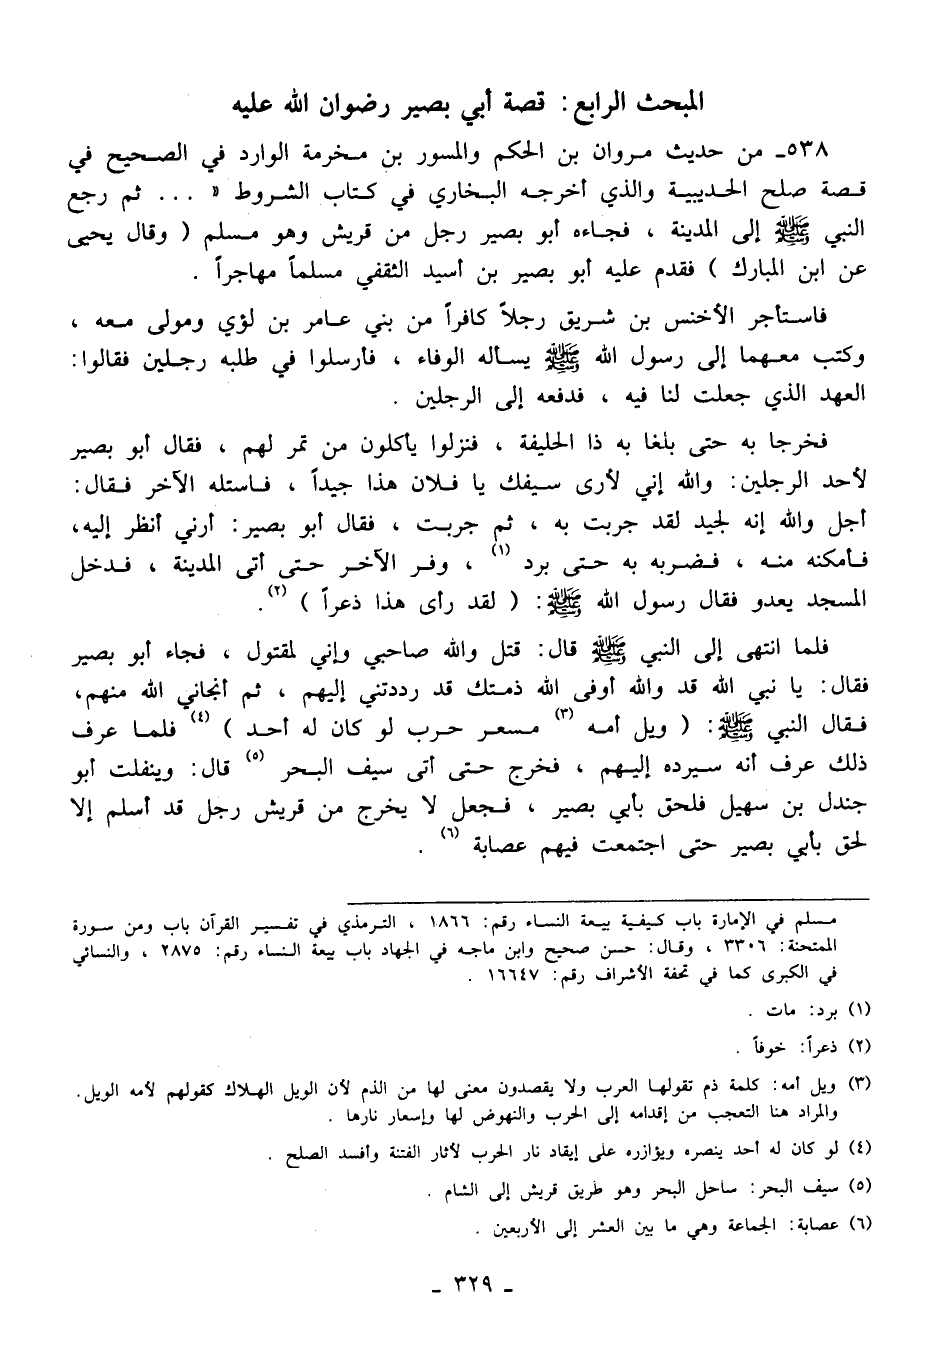 المبحث الرابع: قصة أبي بصير رضوان الله عليه
٥٣٨ـ من حديث مروان بن الحكم والمسور بن مخرمة الوارد في الصحيح في
قصة صلح الحديبية والذي أخرجه البخاري في كتاب الشروط « ... ثم رجع
النبي ﷺ إلى المدينة ، فجاءه أبو بصير رجل من قريش وهو مسلم ( وقال يحيى
عن ابن المبارك ) فقدم عليه أبو بصير بن أسيد الثقفي مسلماً مهاجراً .
فاستأجر الأخنس بن شريق رجلاً كافراً من بني عامر بن لؤي ومولى معه ،
وكتب معهما إلى رسول الله ﷺ يسأله الوفاء ، فأرسلوا في طلبه رجلين فقالوا:
العهد الذي جعلت لنا فيه ، فدفعه إلى الرجلين .
فخرجا به حتى بلغا به ذا الحليفة ، فنزلوا يأكلون من تمر لهم ، فقال أبو بصير
لأحد الرجلين: والله إني لأرى سيفك يا فلان هذا جيداً ، فاستله الآخر فقال:
أجل والله إنه لجيد لقد جربت به ، ثم جربت ، فقال أبو بصير: أرني أنظر إليه،
فأمكنه منه ، فضربه به حتى برد (١) ، وفر الآخر حتى أتى المدينة ، فدخل
المسجد يعدو فقال رسول الله ﷺ: ( لقد رأى هذا ذعراً ) (٢).
فلما انتهى إلى النبي ﷺ قال: قتل والله صاحبي وإني لمقتول ، فجاء أبو بصير
فقال: يا نبي الله قد والله أوفى الله ذمتك قد رددتني إليهم ، ثم أنجاني الله منهم،
فقال النبي ﷺ: ( ويل أمه (٣) مسعر حرب لو كان له أحد ) (٤) فلما عرف
ذلك عرف أنه سيرده إليهم ، فخرج حتى أتى سيف البحر (٥) قال: وينفلت أبو
جندل بن سهيل فلحق بأبي بصير ، فجعل لا يخرج من قريش رجل قد أسلم إلا
لحق بأبي بصير حتى اجتمعت فيهم عصابة (٦) .
مسلم في الإمارة باب كيفية بيعة النساء رقم: ١٨٦٦ ، الترمذي في تفسير القرآن باب ومن سورة
الممتحنة: ٣٣٠٦ ، وقال: حسن صحيح وابن ماجه في الجهاد باب بيعة النساء رقم: ٢٨٧٥ ، والنسائي
في الكبرى كما في تحفة الأشراف رقم: ١٦٦٤٧ .
(١) برد: مات .
(٢) ذعراً: خوفاً .
(٣) ويل أمه: كلمة ذم تقولها العرب ولا يقصدون معنى لها من الذم لأن الويل الهلاك كقولهم لأمه الويل.
والمراد هنا التعجب من إقدامه إلى الحرب والنهوض لها وإسعار نارها .
(٤) لو كان له أحد ينصره ويؤازره على إيقاد نار الحرب لأثار الفتنة وأفسد الصلح .
(٥) سيف البحر: ساحل البحر وهو طريق قريش إلى الشام .
(٦) عصابة: الجماعة وهي ما بين العشر إلى الأربعين .
ـ ٣٢٩ ـ